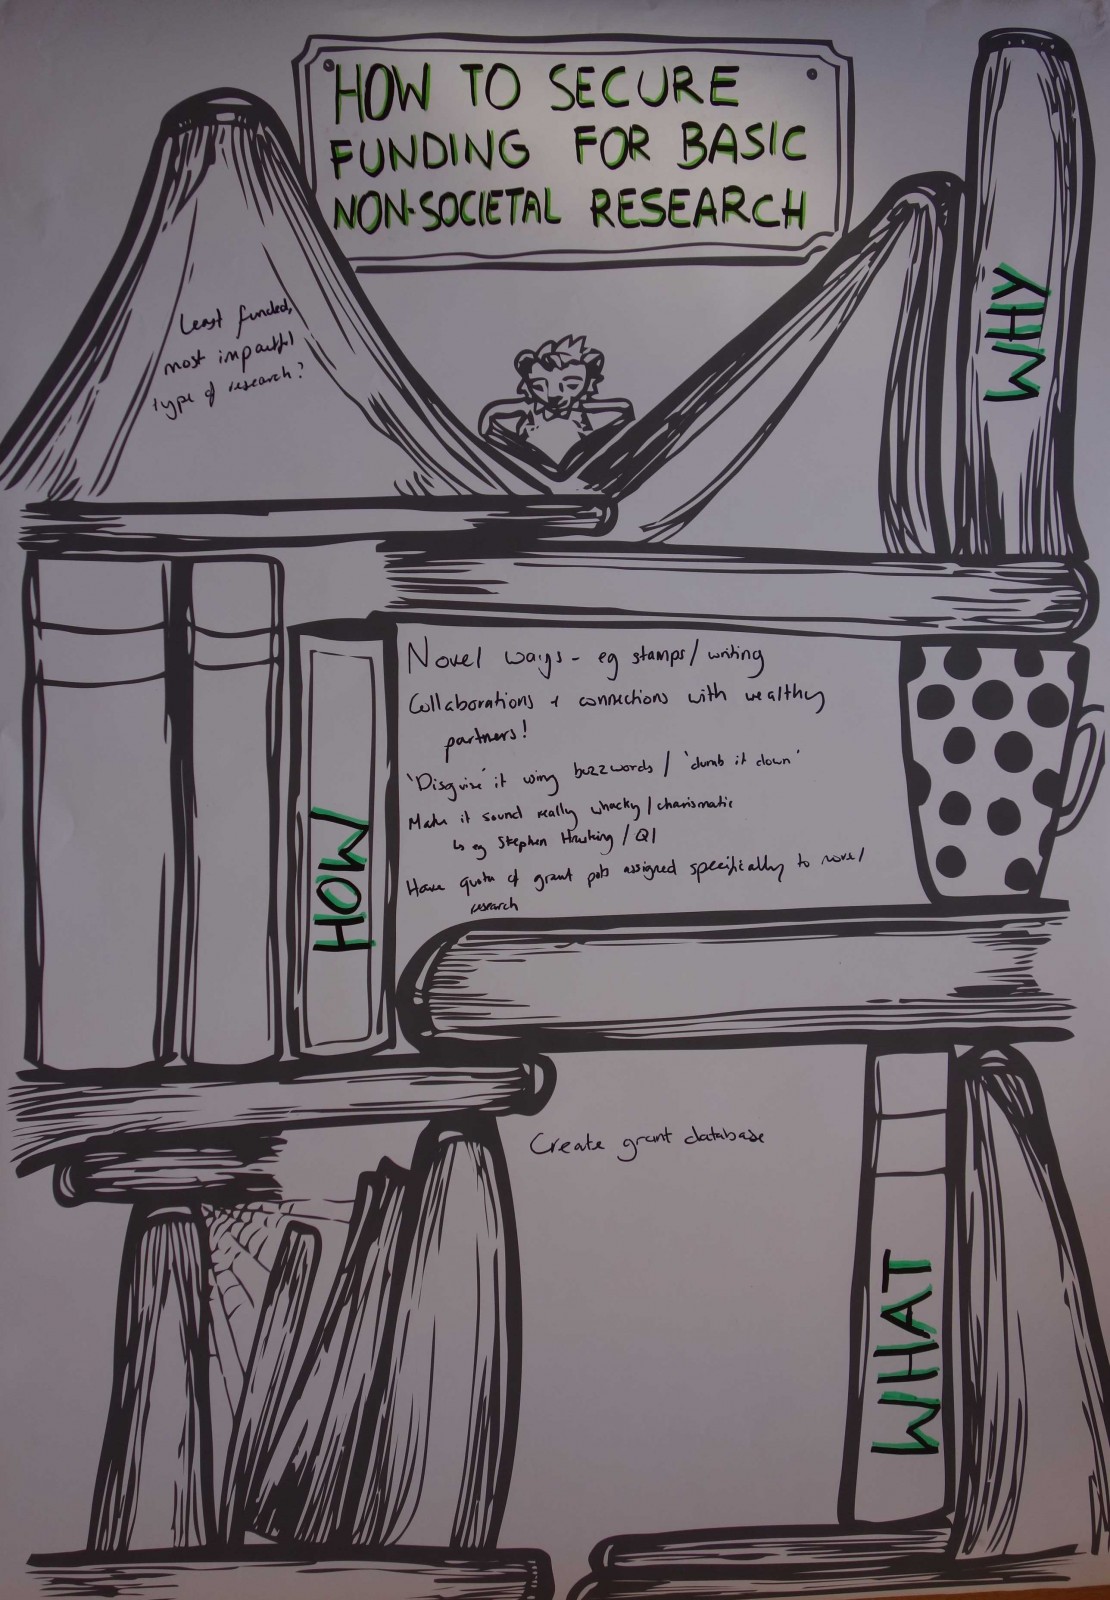 HOW TO SECURE
FUNDING FOR BASIC
NON-SOCIETAL RESEARCH
WHY
Least funded,
most impactful
type of research?
HOW
Novel ways - eg stamps/writing
Collaborations + connections with wealthy
partners!
'Disguise' it using buzzwords / 'dumb it down'
Make it sound really whacky/charismatic
↳ eg Stephen Hawking / QI
Have quota of grant pots assigned specifically to novel
research
Create grant database
WHAT